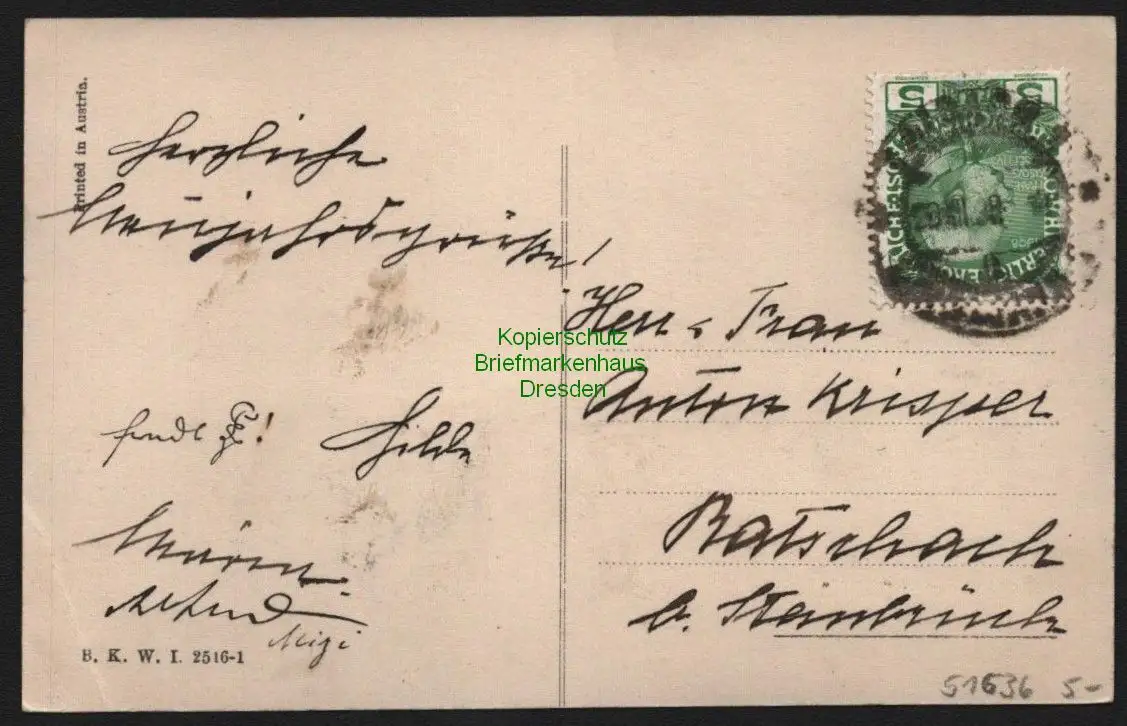 Printed in Austria.
Herzliche
Neujahrsgrüße!
Herr u Frau
Anton Krisper
Ratschach
b. Steinbrück
Kopierschutz
Briefmarkenhaus
Dresden
Hilde
Mizi
B. K. W. I. 2516-1
5 5
1908
51636 5-